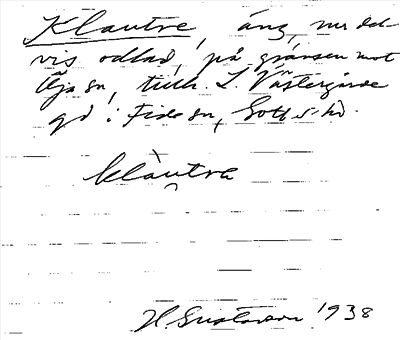 Klautre, äng, nu del-
vis odlad, på gränsen mot
Öja sn, tillh. L. Västergårde
gd i Fide sn, Gotl.
klàutra
H. Gustavson 1938